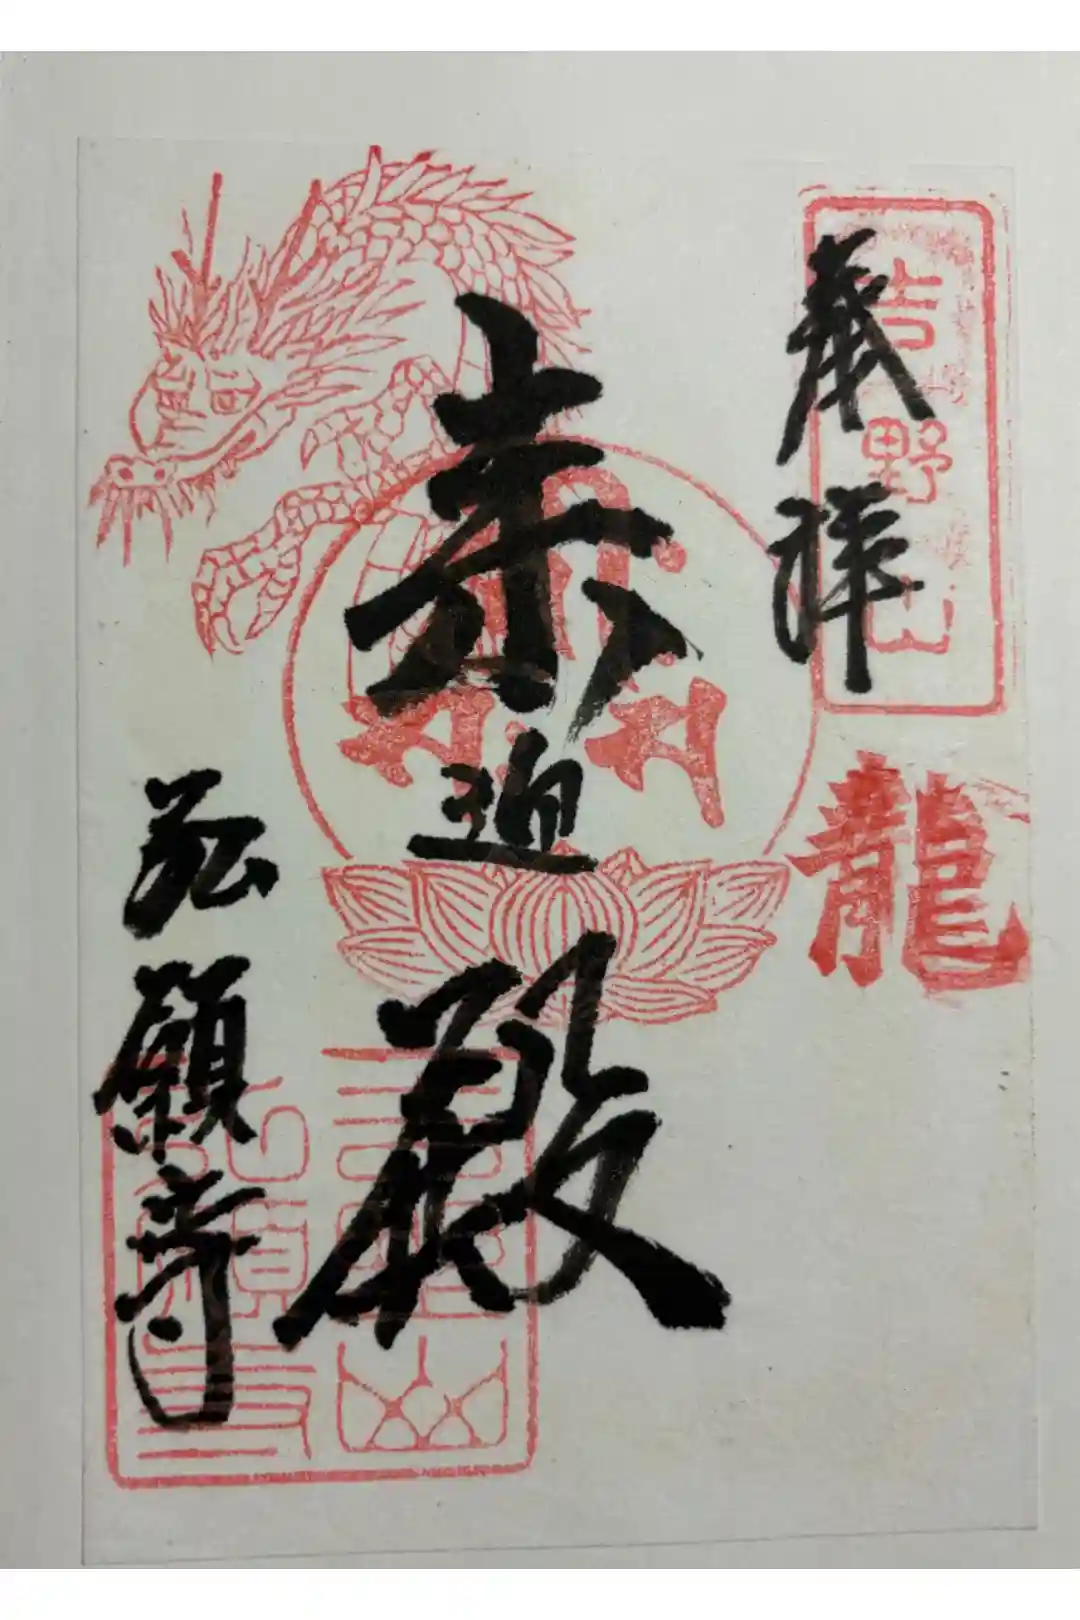 奉拝
吉野山
龍
来迎殿
弘願寺